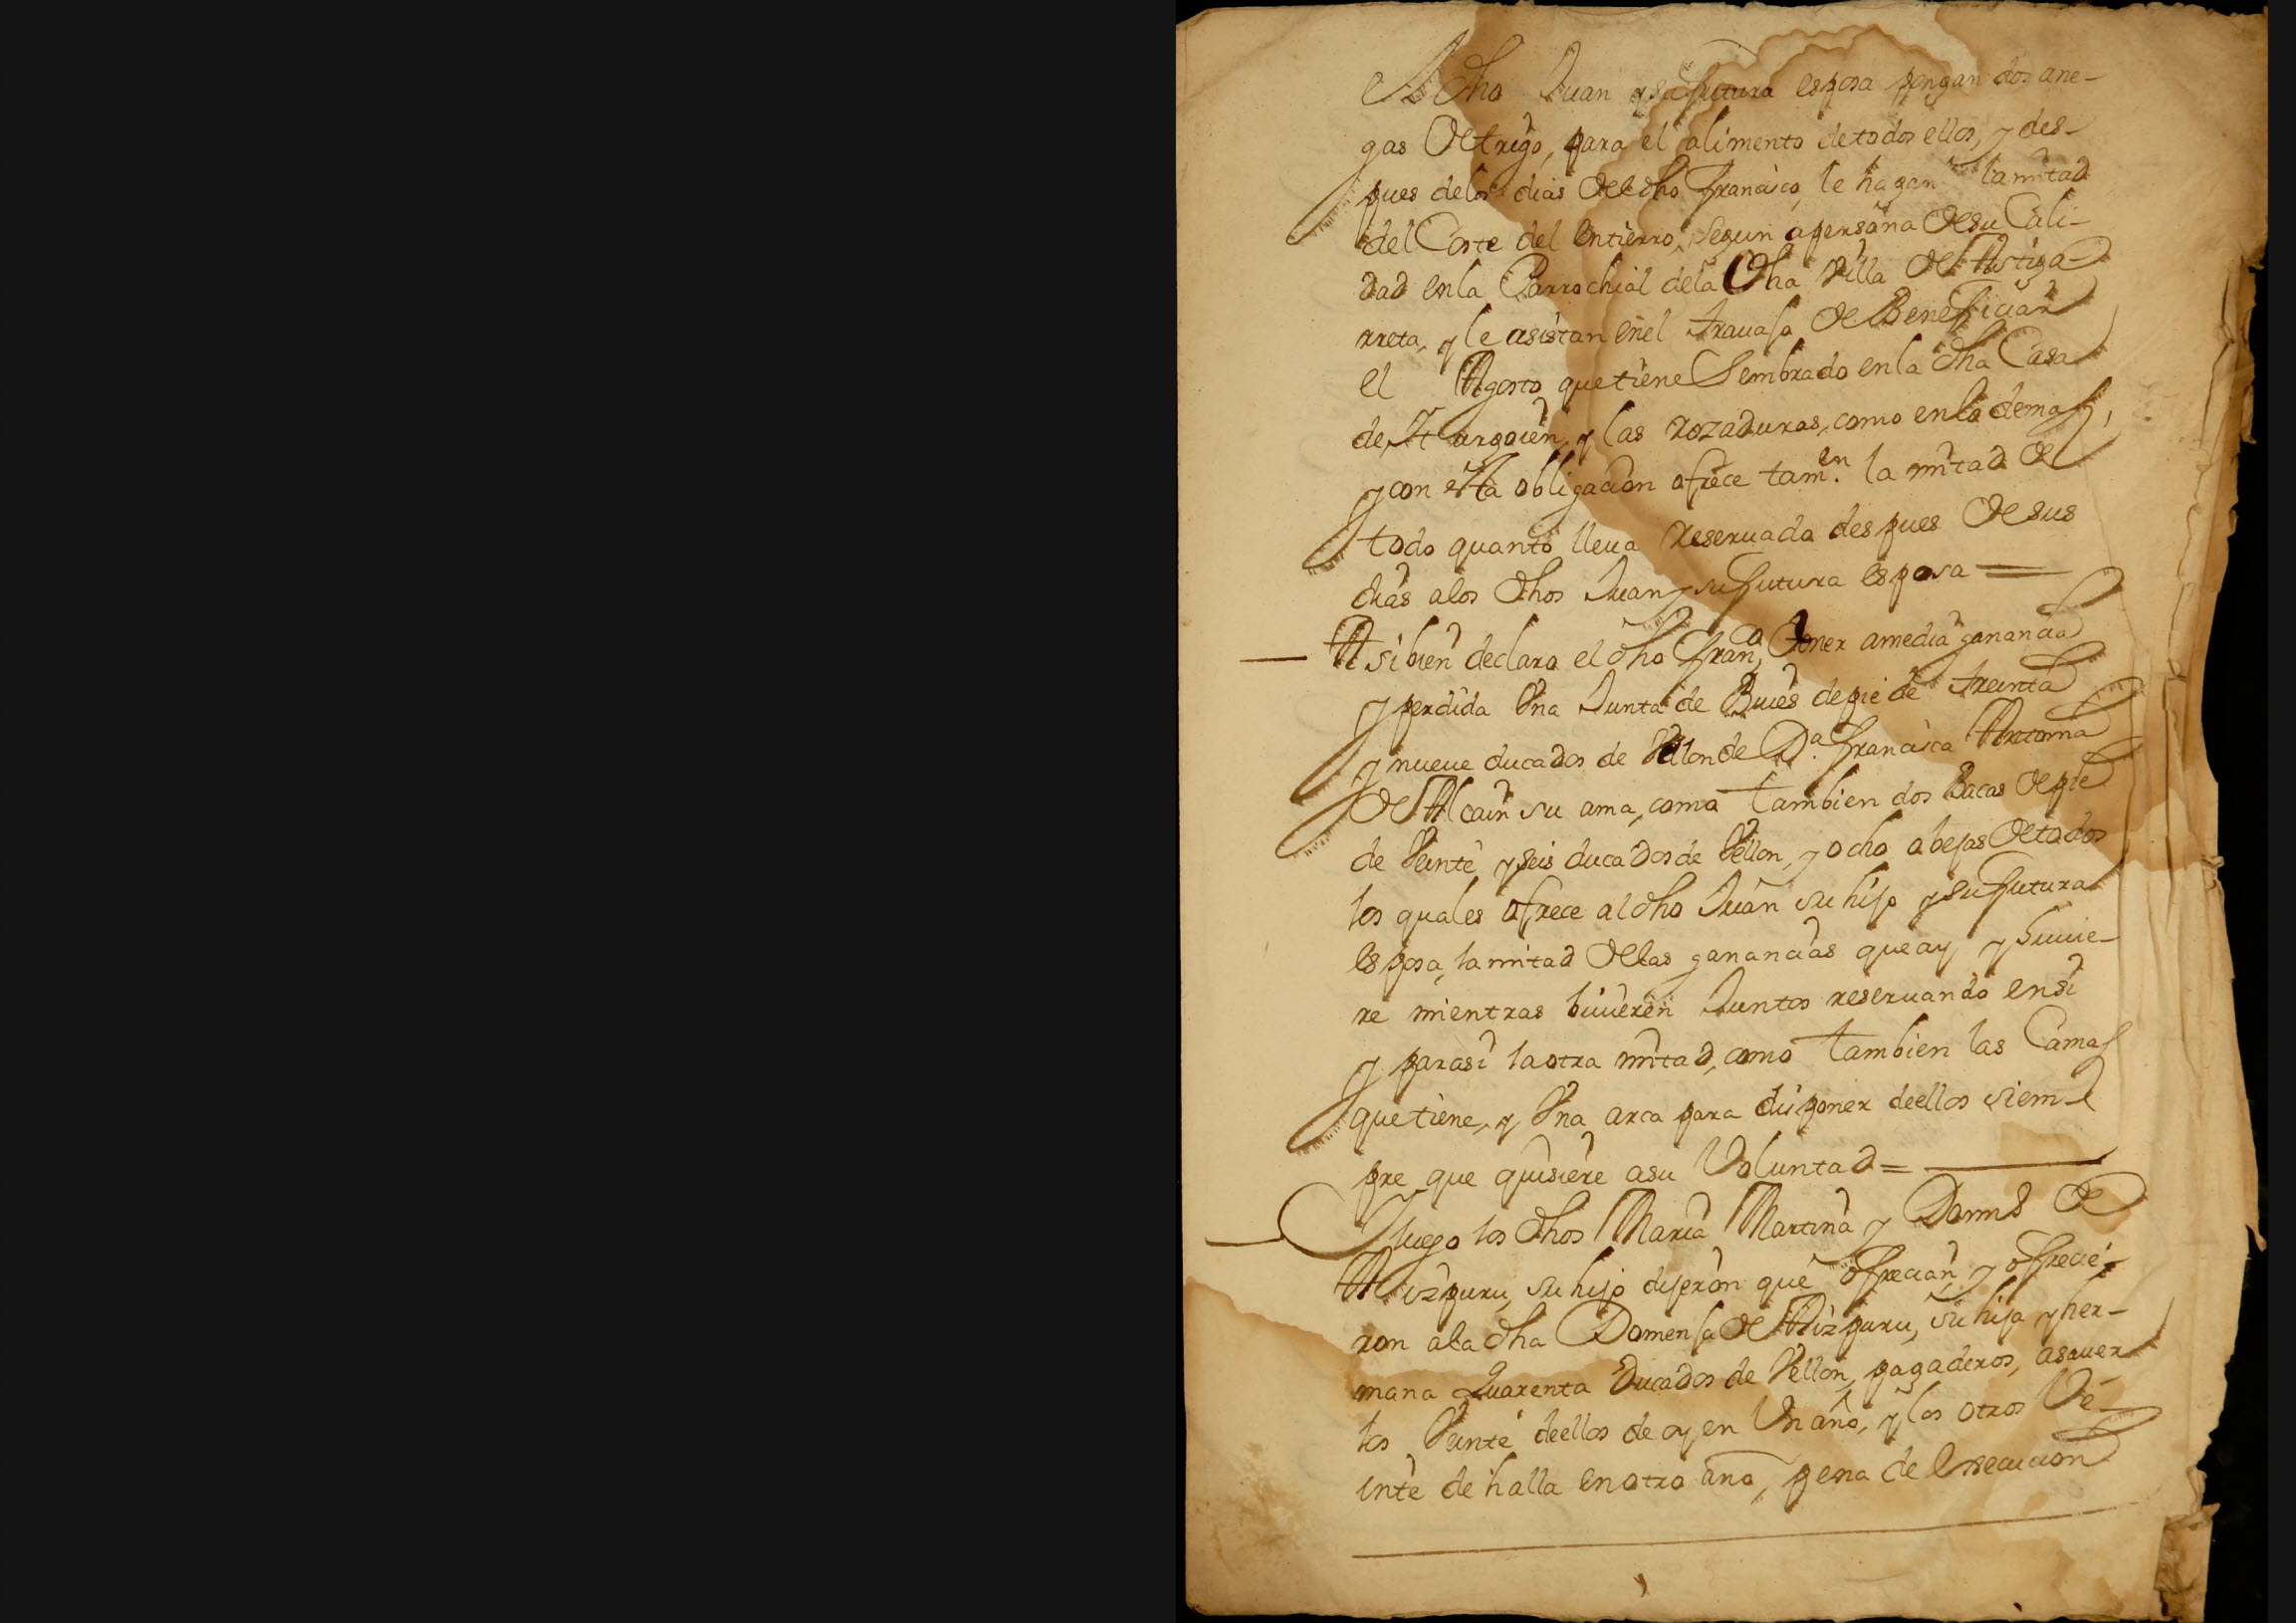 el dho Juan y su futura esposa pongan dos ane-
gas de trigo, para el alimento de todos ellos, y des-
pues de los dias del dho Francisco, le hagan la mitad
del Coste del entierro, segun apersona de su Cali-
dad en la Parrochial de la dha Villa de Astiga-
rreta, y le asistan enel trauajo de Beneficiar
el Agosto que tiene Sembrado en la dha Casa
de Yturgoien, y las rozaduras, como en lo demas,
y con esta obligacion ofrece tamen. la mitad de
todo quanto lleua reseruado despues de sus
dias a los dhos Juan y su futura esposa =
Asi bien declaro el dho Franco, tener a media ganancia
y perdida Vna Junta de Bues de pie de treinta
y nueue ducados de Vellon de Da. Francisca Antonia
de Alcain su ama, como tambien dos Bacas de pie
de Veinte y seis ducados de Vellon, y ocho abejas de todos
los quales ofrece al dho Juan su hijo y su futura
esposa, la mitad de las ganancias que ay y huuie-
re mientras biuieren Juntos reseruando en si
y para si la otra mitad, como tambien las Camas
que tiene, y Vna arca para disponer de ellos siem-
pre que quisiere asu Voluntad =
Y luego los dhos Maria Martina y Domins de
Aizpuru, su hijo dijeron que ofrecian, y ofrecie-
ron a la dha Domenja de Aizpuru, su hija y her-
mana Quarenta Ducados de Vellon, pagaderos, asauer
los Veinte de ellos de oy en Vn año, y los otros Ve-
inte de halla en otro año, pena de Execucion